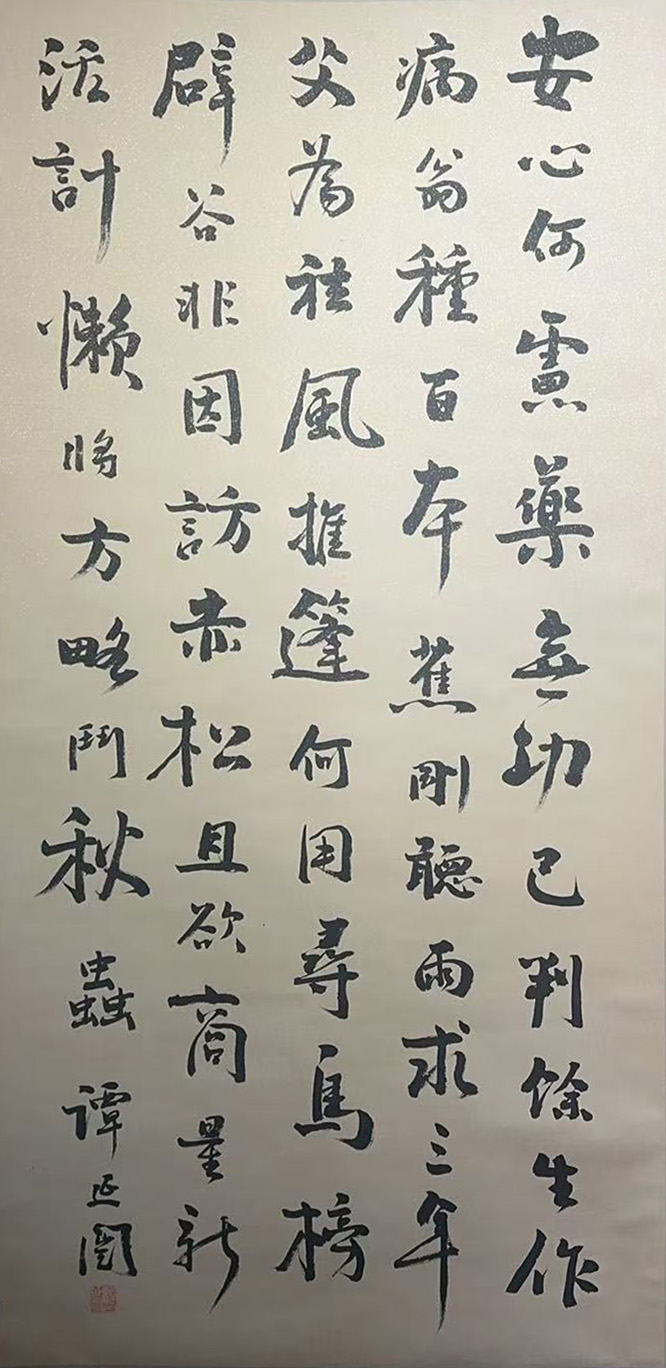 安心何慮藥無功已判餘生作
病翁種百本蕉剛聽雨求三年
艾為祛風推篷何用尋烏榜
辟谷非因訪赤松且欲商量新
活計懶將方略鬥秋蟲譚延闓